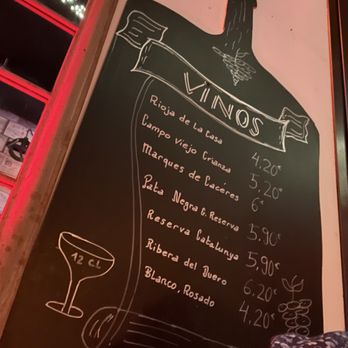 VINOS
Rioja de La Casa 4,20€
Campo Viejo Crianza 5,20€
Marques de Caceres 6€
Pata Negra G. Reserva 5,90€
Reserva Catalunya 5,90€
Ribera del Duero 6,20€
Blanco, Rosado 4,20€
12 CL